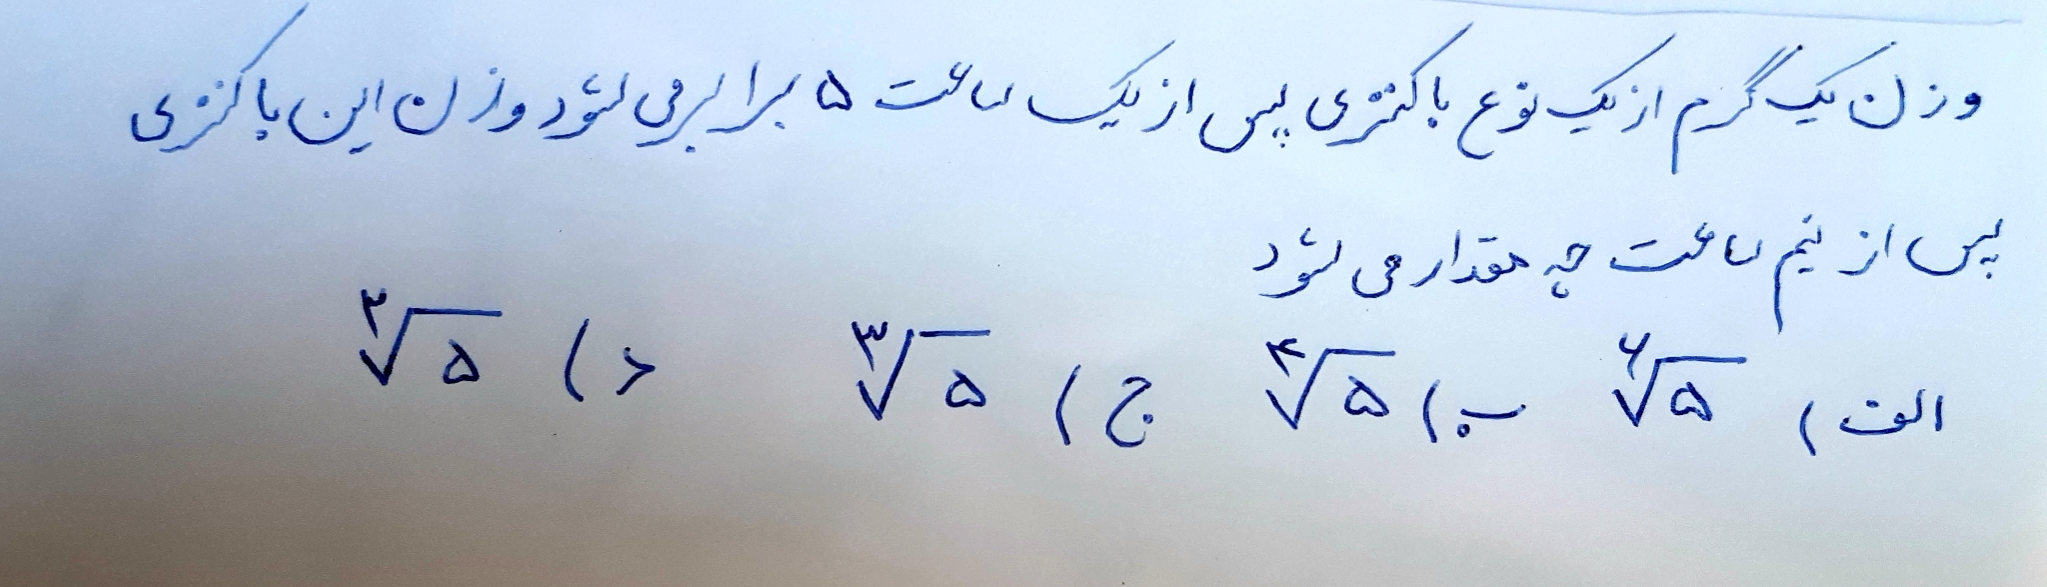 وزن یک گرم از یک نوع باکتری پس از یک ساعت ۵ برابر می شود وزن این باکتری
پس از نیم ساعت چه مقدار می شود
الف) ۶√۵ ب) ۴√۵ ج) ۳√۵ د) ۲√۵